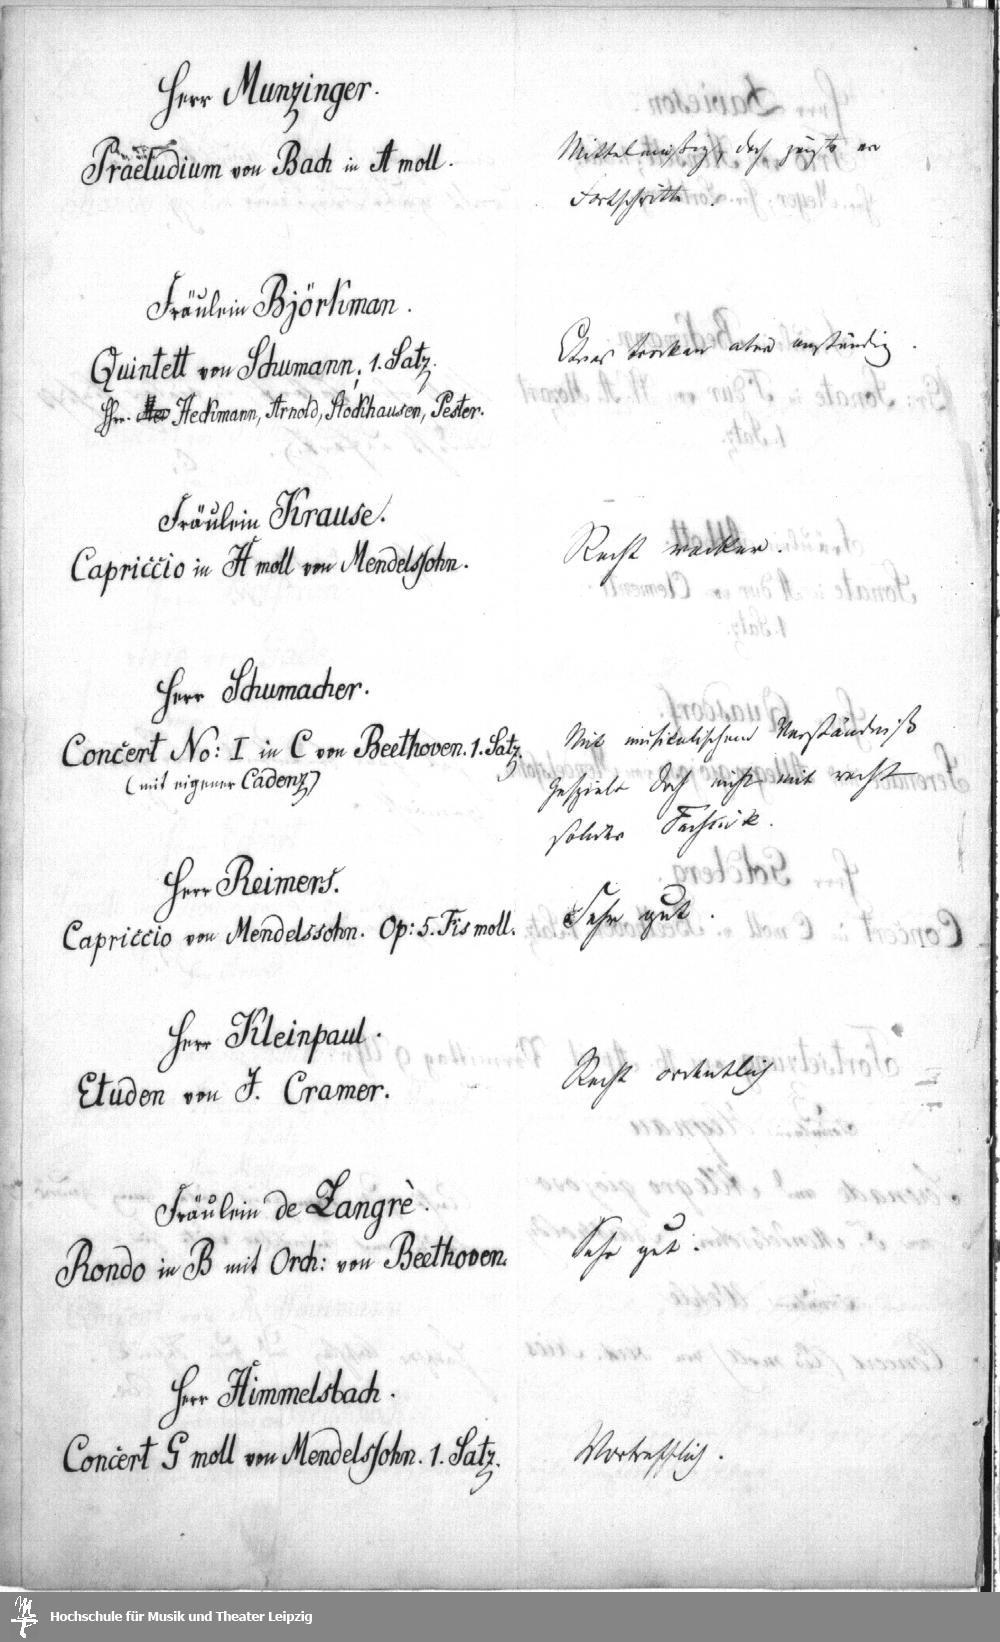 Herr Munzinger.
Praeludium von Bach in A moll.
Mittelmäßig, doch zeigte er
Fortschritte.
Fräulein Björkman.
Quintett von Schumann, 1. Satz.
Hrr. Heckmann, Arnold, Stockhausen, Pester.
Etwas trocken aber anständig.
Fräulein Krause.
Capriccio in H moll von Mendelssohn.
Recht wacker.
Herr Schumacher.
Concert No: I in C von Beethoven. 1. Satz.
(mit eigener Cadenz)
Mit musikalischem Verständniß
gespielt doch nicht mit recht
solider Technik.
Herr Reimers.
Capriccio von Mendelssohn. Op: 5. Fis moll.
Sehr gut.
Herr Kleinpaul.
Etuden von J. Cramer.
Recht ordentlich
Fräulein de Zangrè.
Rondo in B mit Orch: von Beethoven.
Sehr gut.
Herr Himmelsbach.
Concert G moll von Mendelssohn. 1. Satz.
Vortrefflich.
Hochschule für Musik und Theater Leipzig